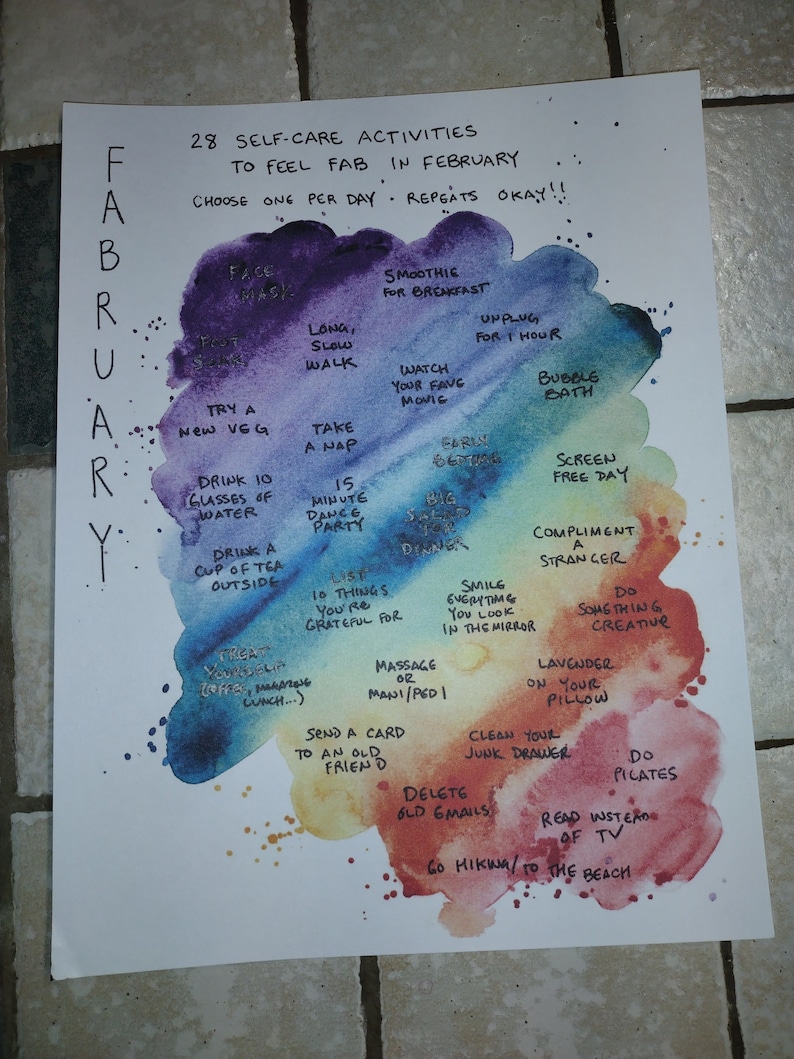 FABRUARY
28 SELF-CARE ACTIVITIES
TO FEEL FAB IN FEBRUARY
CHOOSE ONE PER DAY • REPEATS OKAY!!
FACE
MASK
SMOOTHIE
FOR BREAKFAST
FOOT
SOAK
LONG,
SLOW
WALK
UNPLUG
FOR 1 HOUR
WATCH
YOUR FAVE
MOVIE
BUBBLE
BATH
TRY A
NEW VEG
TAKE
A NAP
EARLY
BEDTIME
SCREEN
FREE DAY
DRINK 10
GLASSES OF
WATER
15
MINUTE
DANCE
PARTY
BIG
SALAD
FOR
DINNER
COMPLIMENT
A
STRANGER
DRINK A
CUP OF TEA
OUTSIDE
LIST
10 THINGS
YOU'RE
GRATEFUL FOR
SMILE
EVERYTIME
YOU LOOK
IN THE MIRROR
DO
SOMETHING
CREATIVE
TREAT
YOURSELF
(COFFEE, MAGAZINE
LUNCH...)
MASSAGE
OR
MANI/PEDI
LAVENDER
ON YOUR
PILLOW
SEND A CARD
TO AN OLD
FRIEND
CLEAN YOUR
JUNK DRAWER
DO
PILATES
DELETE
OLD EMAILS
READ INSTEAD
OF TV
GO HIKING/TO THE BEACH